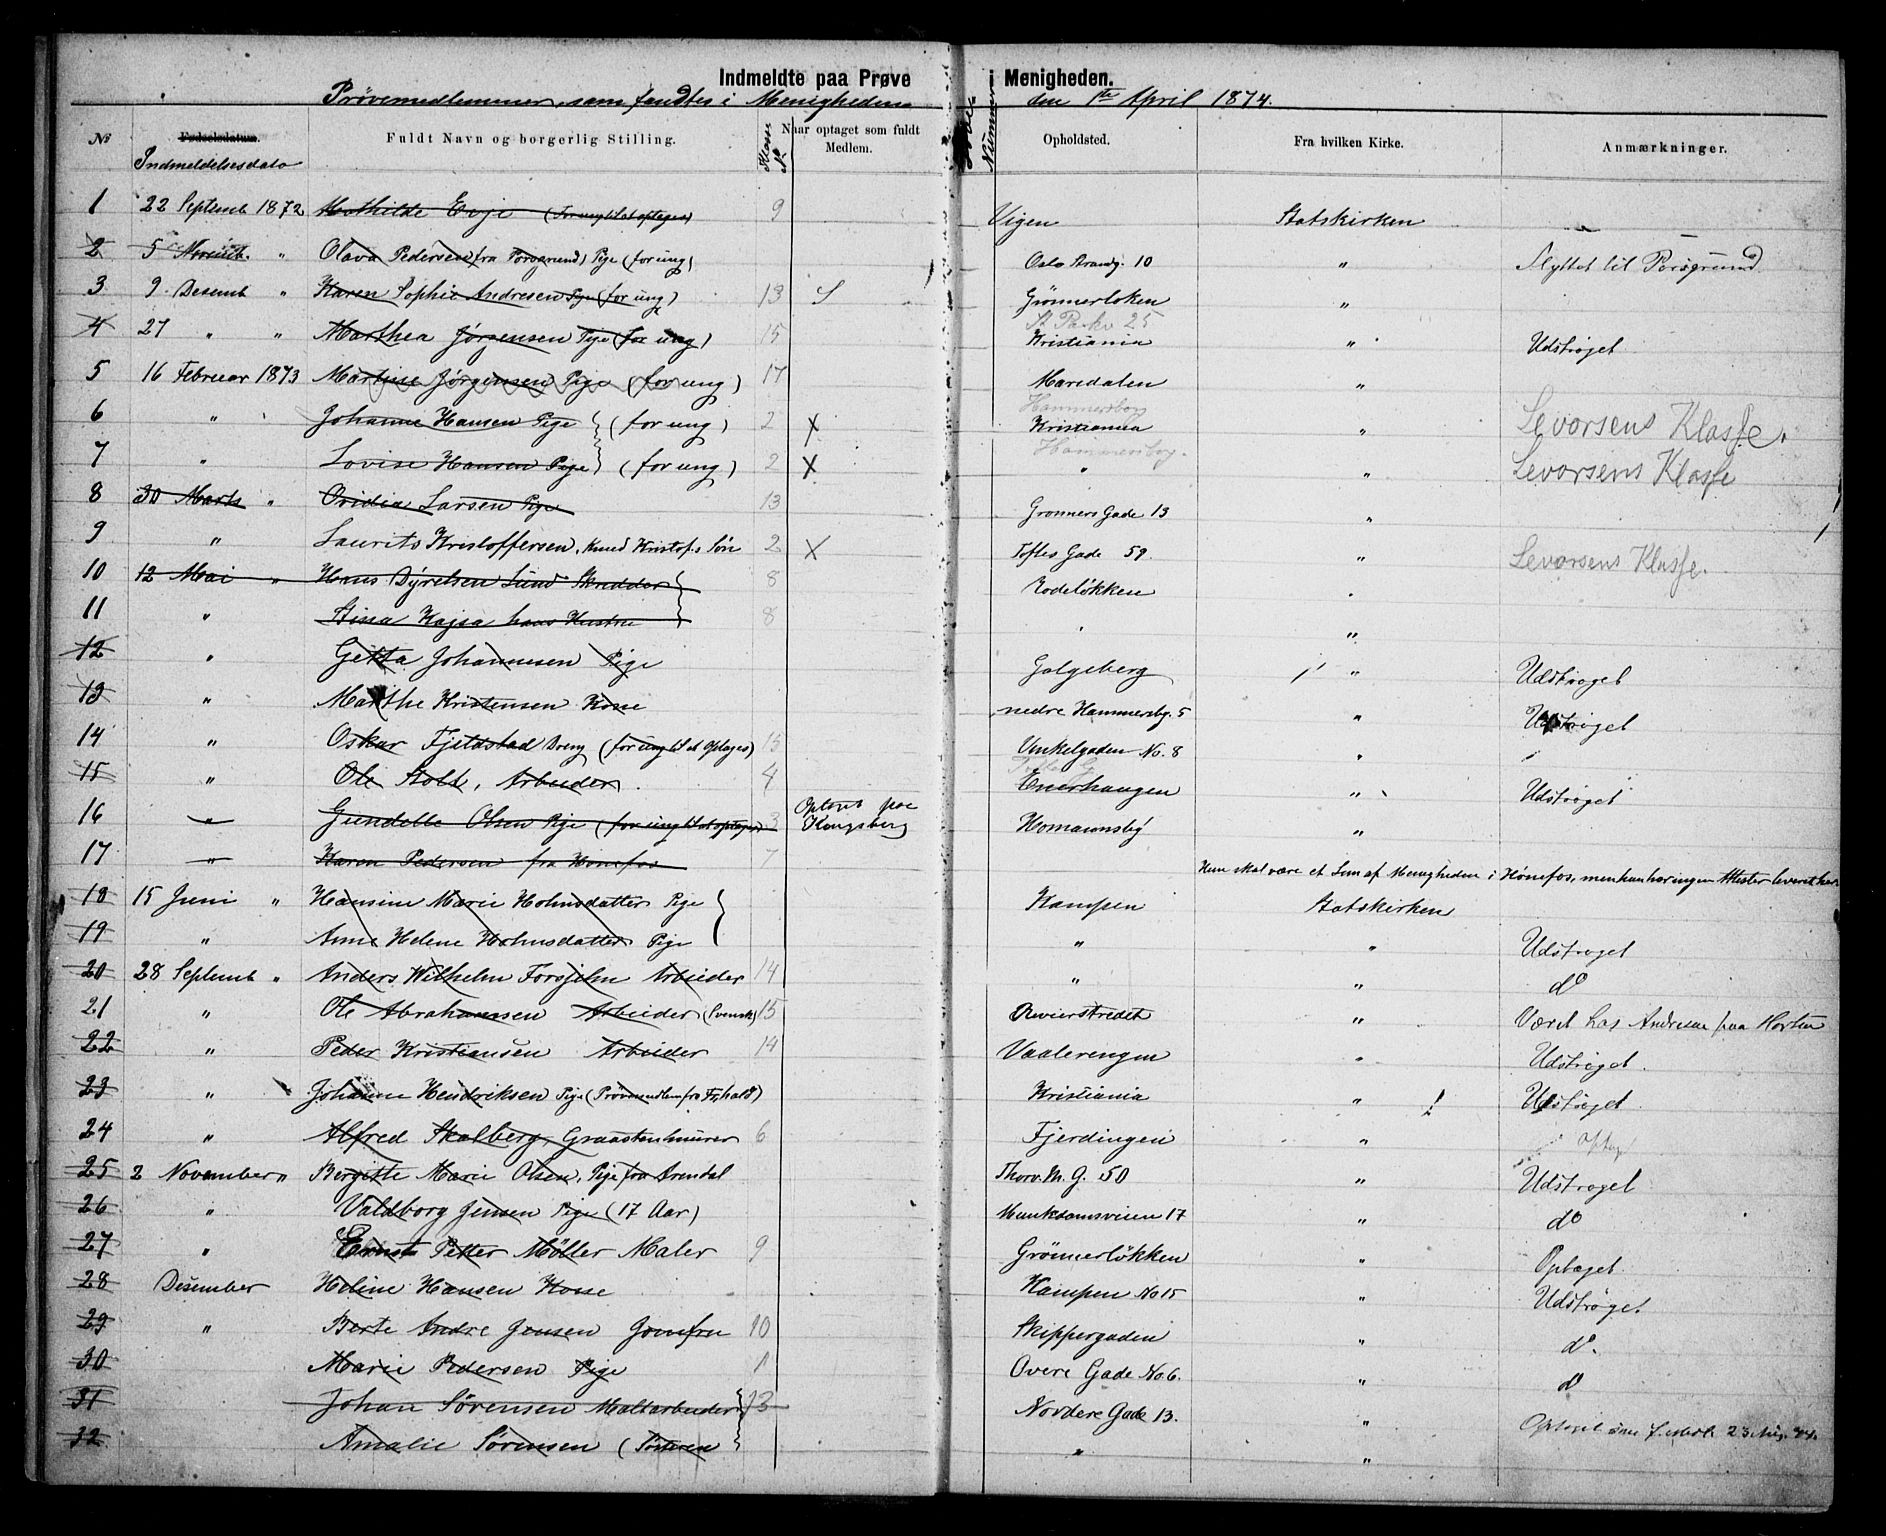 Indmeldte paa Prøve i Menigheden.
Prøvemedlemmer, som fandtes i Menigheden den 1ste April 1874.
№ Fødselsdatum. Fuldt Navn og borgerlig Stilling. Klasse № Naar optaget som fuldt Medlem. Nummer Opholdsted. Fra hvilken Kirke. Anmærkninger.
Indmeldelsesdato
1 22 Septemb 1872 Mathilde Evje (For ung til at optages) 9 Vigen Statskirken
2 5 " Olava Pedersen fra Porsgrund) Pige (for ung) Oslo Strandg. 10 " Flyttet til Porsgrund
3 9 Desemb " Karen Sophie Andresen Pige (for ung) 13 Grönnerløken "
St Parkv 25
4 27 " " Marthea Jørgensen Pige (for ung) 15 Kristiania " Udstrøget
5 16 Februar 1873 Martine Jørgensen Pige (for ung) 17 Maridalen "
Hammersborg
6 " Johanne Hansen Pige (for ung) 2 X Kristiania " Levorsens Klasse.
Hammersborg.
7 " Lovise Hansen Pige (for ung) 2 X " " Levorsens Klasse
8 30 Marts " Ovidia Larsen Pige 13 Grønners Gade 13 "
9 " Laurits Kristoffersen, Knud Kristof.s Søn 2 X Toftes Gade 59. " Levorsens Klasse.
10 12 Mai " Hans Dyrelsen Lund Skrædder 8 Rodeløkken "
11 " Stina Kajsa hans Hustru 8 " "
12 " Getta Johannesen Pige Galgeberg " Udstrøget
13 " Marthe Kristensen Kone nedre Hammersbg. 5 " Udstrøget
14 " Oskar Fjeldstad Dreng (for ung til at Optages) 15 Vinkelgaden No. 8 "
15 " Ole Stolt, Arbeider. 4 Enerhaugen " Udstrøget
16 " Gundelle Olsen Pige (for ung til at optages) 3 Optaget paa Kongsberg Homannsby "
17 " Karen Pedersen fra Hønefos 7 Hun skal være et Lem af Menigheden i Hønefos, men hun har ingen Attester leveret her.
18 15 Juni " Hansine Marie Holmsdatter Pige Kampen Statskirken
19 " Anne Helene Holmsdatter Pige " " Udstrøget
20 28 Septemb " Anders Wilhelm Forsjelm Arbeider 14 " " do
21 " Ole Abrahamsen Arbeider (Svensk) 15 Røverstredet " Været hos Andresen paa Horten
22 " Peder Kristiansen Arbeider 14 Vaalerengen " Udstrøget.
23 " Johanne Hendriksen Pige (Prøvemedlem fra Fr.hald) Kristiania " ! Udstrøget.
24 " Alfred Skalberg, Graastenmurer 6 Fjerdingen " Optag
25 2 November " Bergitte Marie Olsen, Pige fra Arendal Thorv. M. G. 50 " Udstrøget
26 " Valdborg Jensen Pige (17 Aar) Munkdamsveien 17 " do
27 " Ernst Petter Møller Maler 9 Grönnerløkken " Optaget
28 Desember Heline Hansen Kone Kampen No 15 " Udstrøget
29 " Berte Andre Jensen Jomfru 10 Skippergaden " do.
30 Marie Pedersen Pige 1 Overe Gade No 6. " do
31 Johan Sørensen Maltarbeider 13 Nordere Gade 13. " Optaget 23 Aug. 74.
32 Amalie Sørensen (Søsteren " "